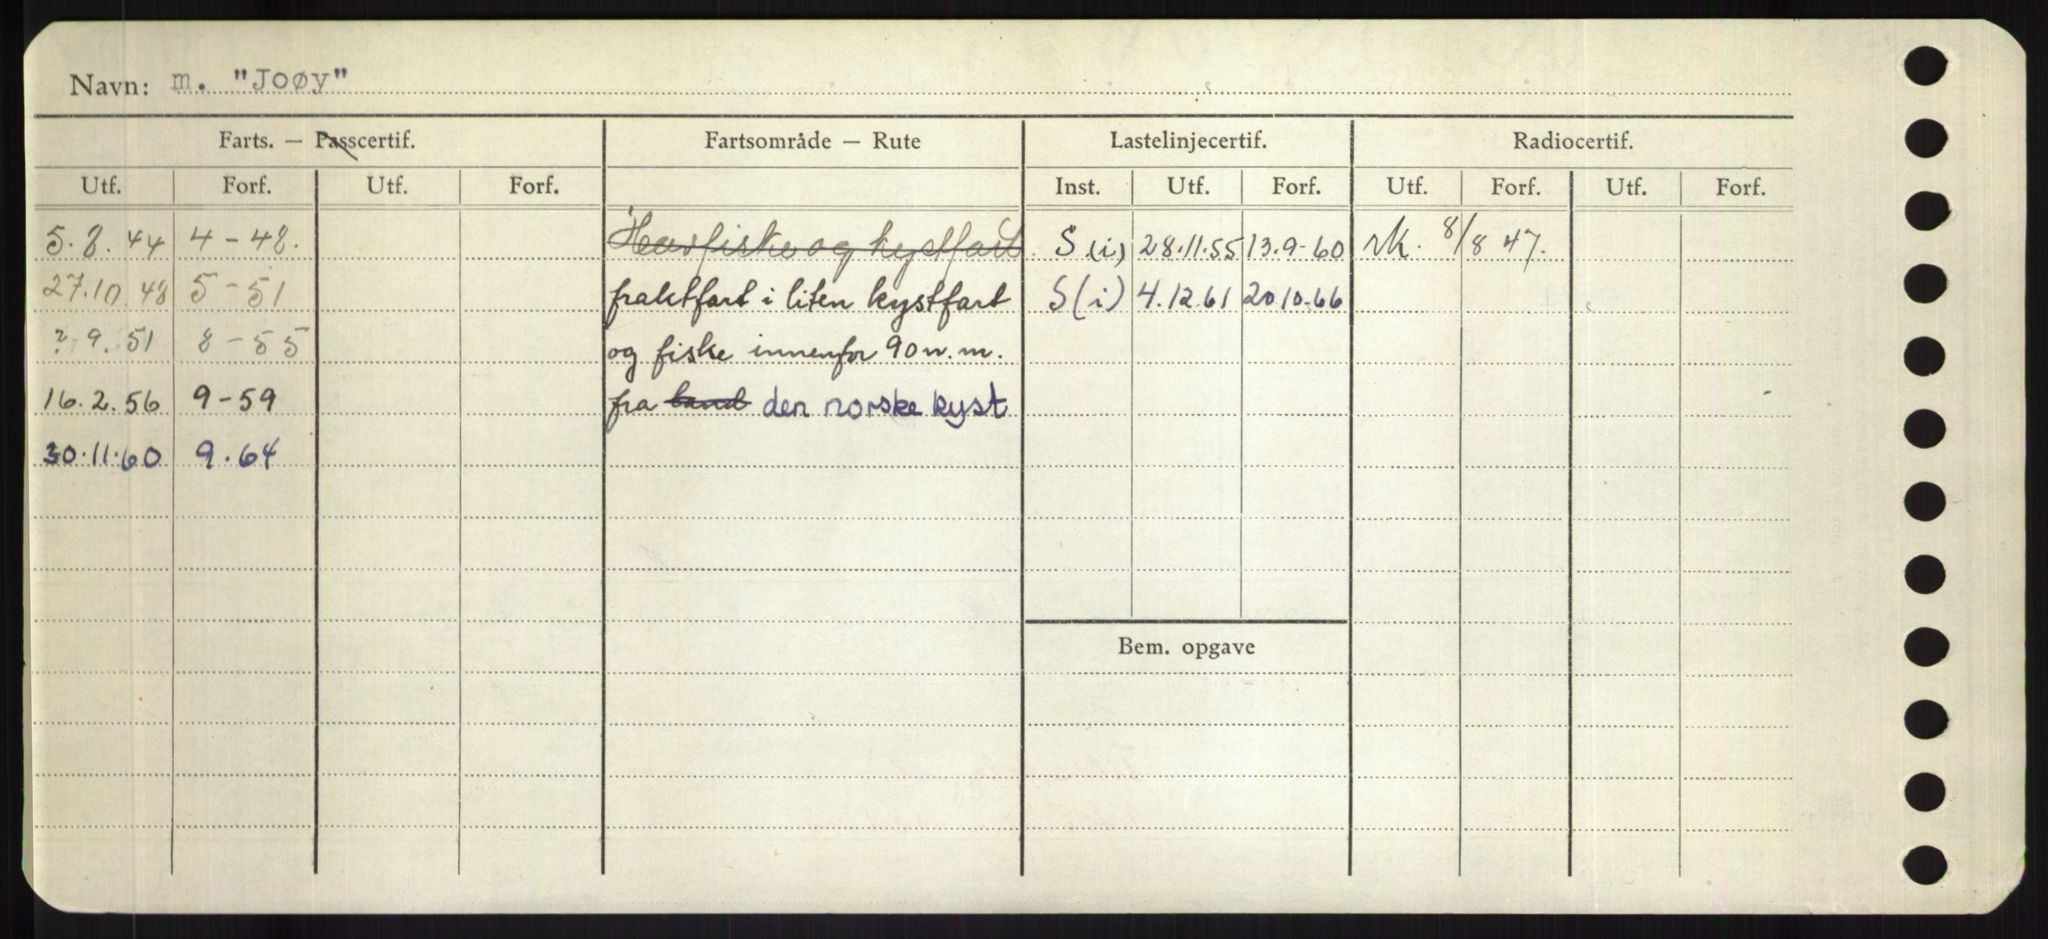 Navn: m. "Joøy"
Farts. — Passcertif. Fartsområde — Rute Lastelinjecertif. Radiocertif.
Utf. Forf. Utf. Forf. Inst. Utf. Forf. Utf. Forf. Utf. Forf.
5.8.44 4-48. Havfiske og kystfart S (i) 28.11.55 13.9-60 rk. 8/8 47.
27.10.48 5-51 fraktfart i liten kystfart S (i) 4.12.61 20.10.66
?.9.51 8-55 og fiske innenfor 90 n.m.
16.2.56 9-59 fra land den norske kyst
30.11.60 9.64
Bem. opgave